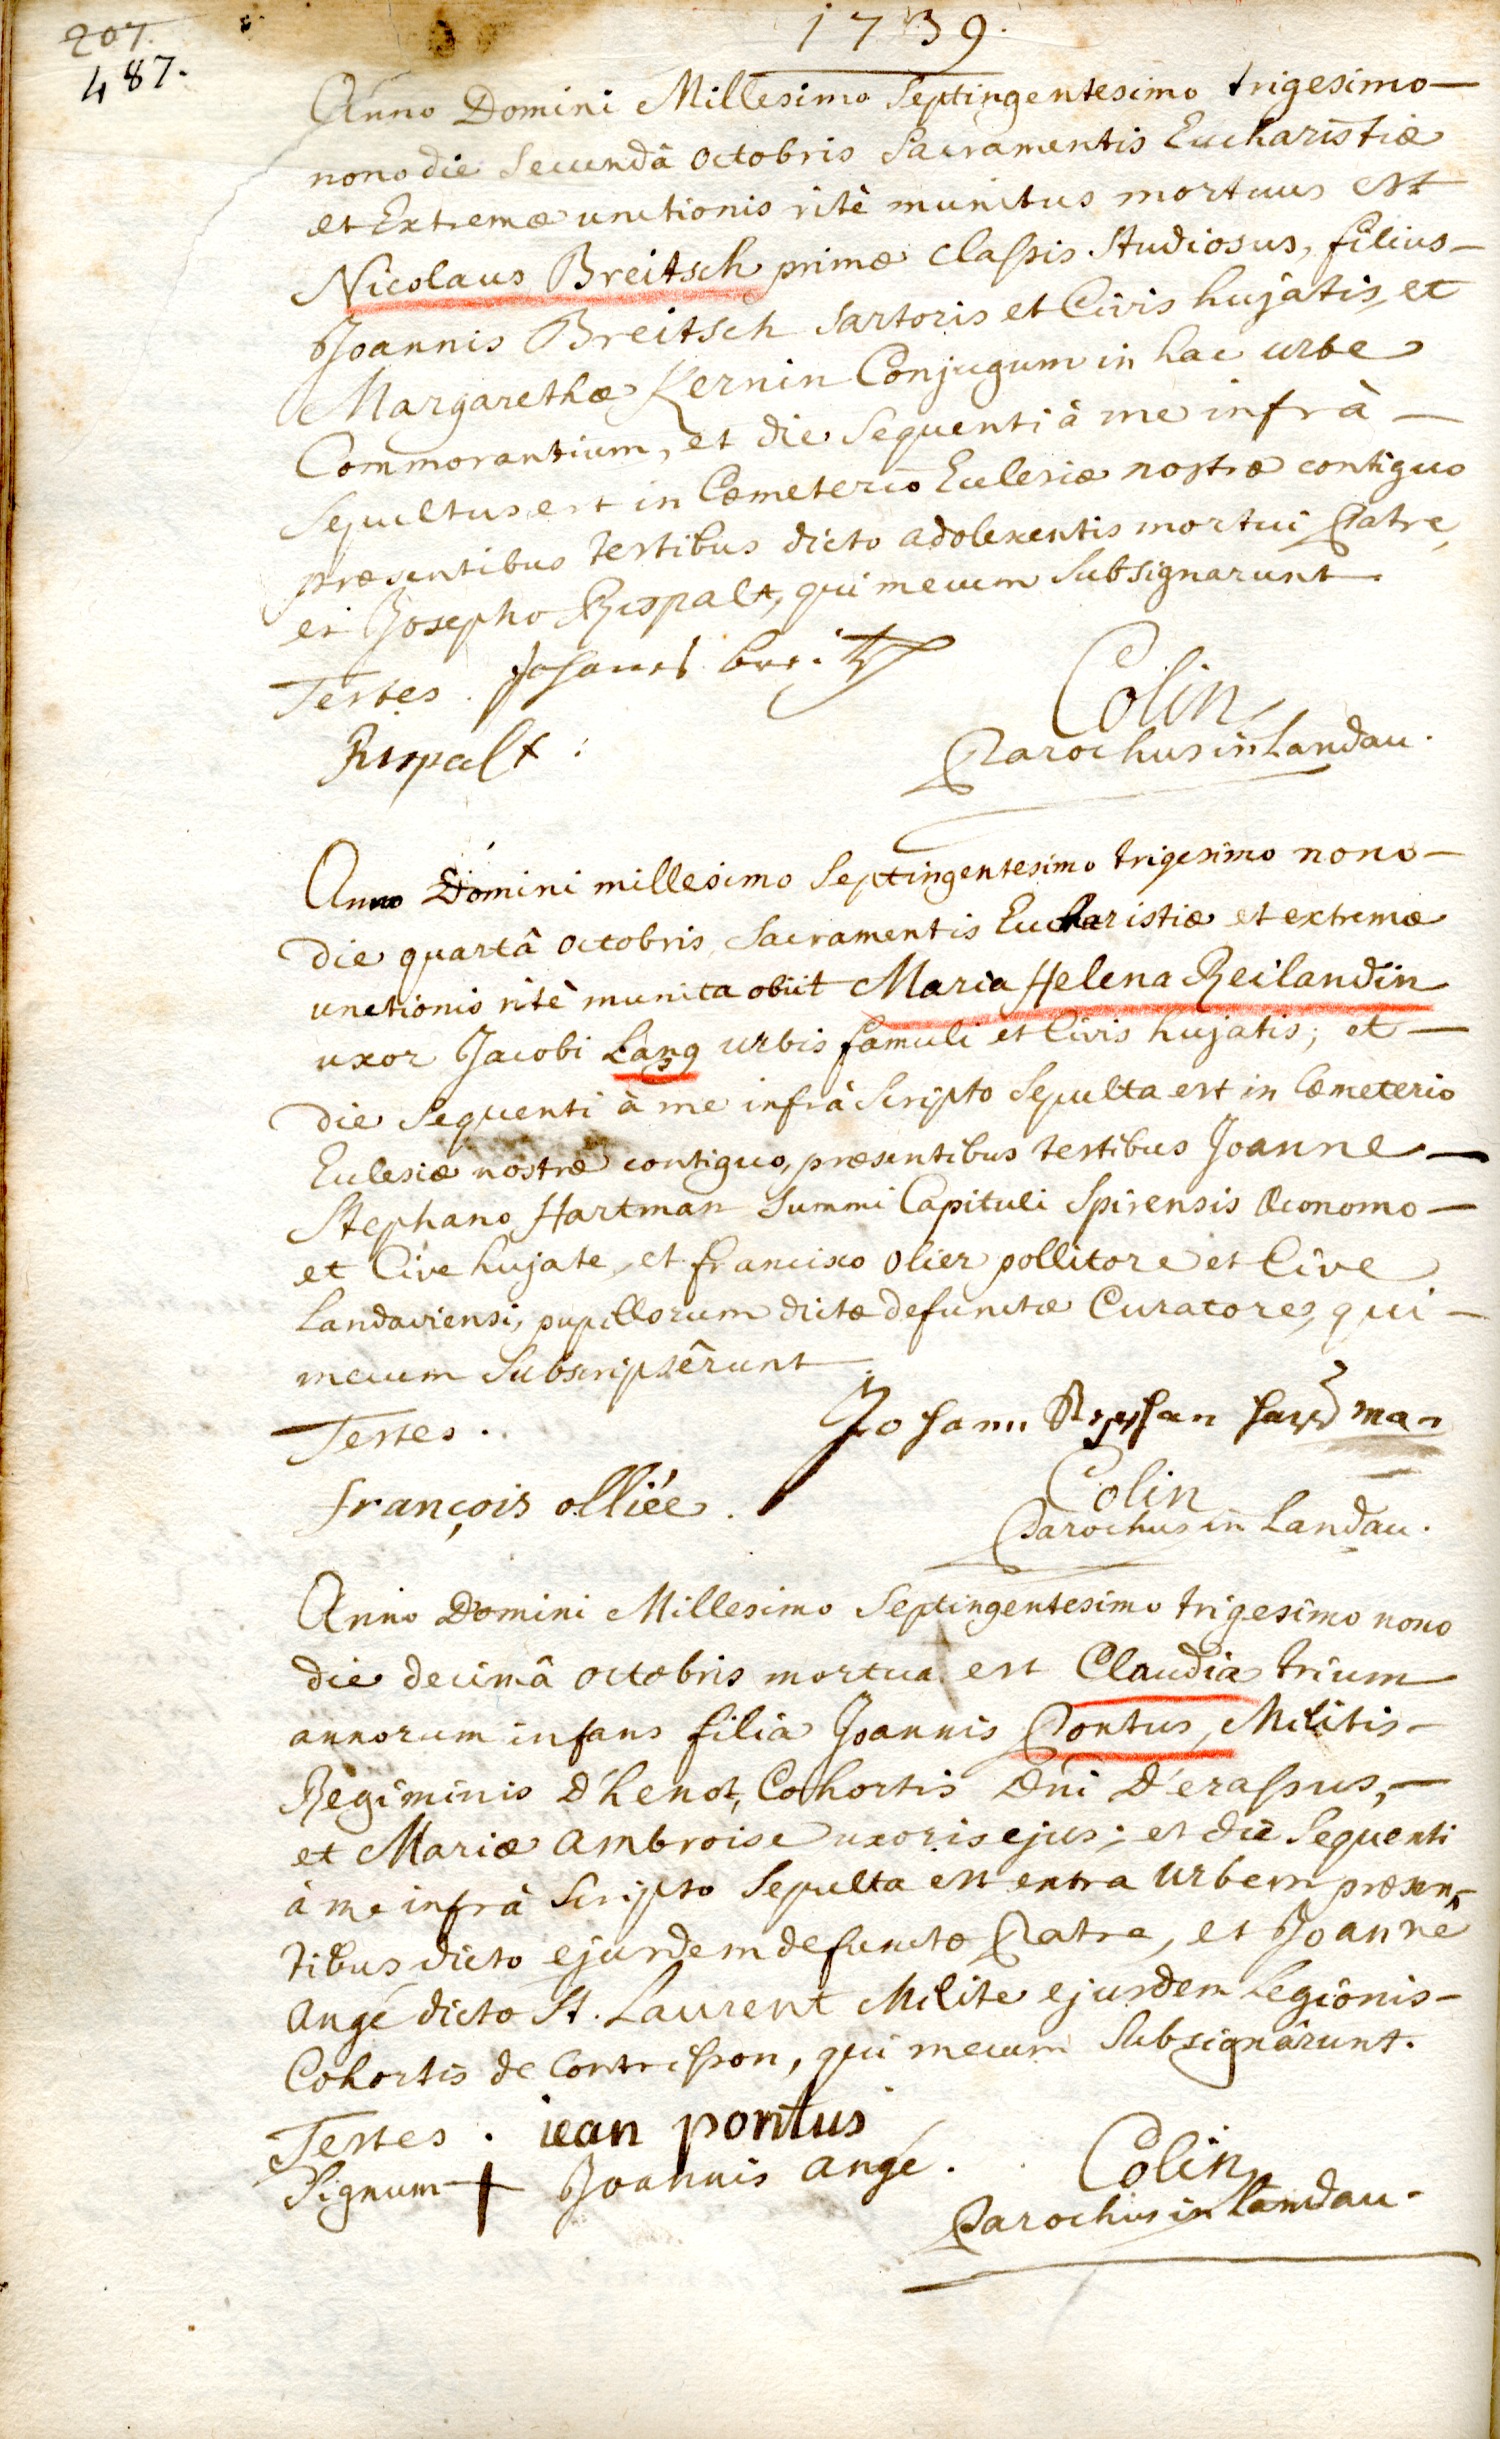 1739.
207.
487.
Anno Domini Millesimo Septingentesimo trigesimo—
nono die Secundâ octobris Sacramentis Eucharistiæ
et Extremæ unctionis ritè munitus mortuus est
Nicolaus Breitsch primæ classis Studiosus, filius—
Joannis Breitsch Sartoris et Civis hujatis, et
Margarethæ Kernin Conjugum in hac urbe
Commorantium, et die Sequenti à me infrà—
Sepultus est in Cœmeterio Ecclesiæ nostræ contiguo
præsentibus testibus dicto adolescentis mortui Patre,
et Josepho Rispalt, qui mecum Subsignarunt
Testes. Johanes
Rispalt:
Colin
Parochus in Landau.
Anno Domini millesimo Septingentesimo trigesimo nono—
die quartâ octobris Sacramentis Eucharistiæ et extremæ
unctionis ritè munita obiit Maria Helena Reilandin
uxor Jacobi Lang urbis famuli et Civis hujatis; et—
die Sequenti à me infrà Scripto Sepulta est in Cœmeterio
Ecclesiæ nostræ contiguo, præsentibus testibus Joanne—
Stephano Hartman Summi Capituli Spirensis Œconomo—
et Cive hujate, et francisco olier pollitore et Cive
Landaviensi, pupillorum dictæ defunctæ Curatores, qui—
mecum Subscripsêrunt.
Testes.
Johann
François olliée.
Colin
Parochus in Landau.
Anno Domini Millesimo Septingentesimo trigesimo nono
die decimâ octobris mortua est Claudia trium
annorum infans filia Joannis Pontus, Militis—
Regiminis d'henot, Cohortis Dni D'erassus,—
et Mariæ Ambroise uxoris ejus; et die Sequenti
à me infrà Scripto Sepulta est extra Urbem præsen-
tibus dicto ejusdem defunctæ Patre, et Joanne
Angé dicto St. Laurent Milite ejusdem Legionis—
Cohortis de Contrisson, qui mecum Subsignârunt.
Testes. iean pontus
Signum + Joannis Angé.
Colin
Parochus in Landau.